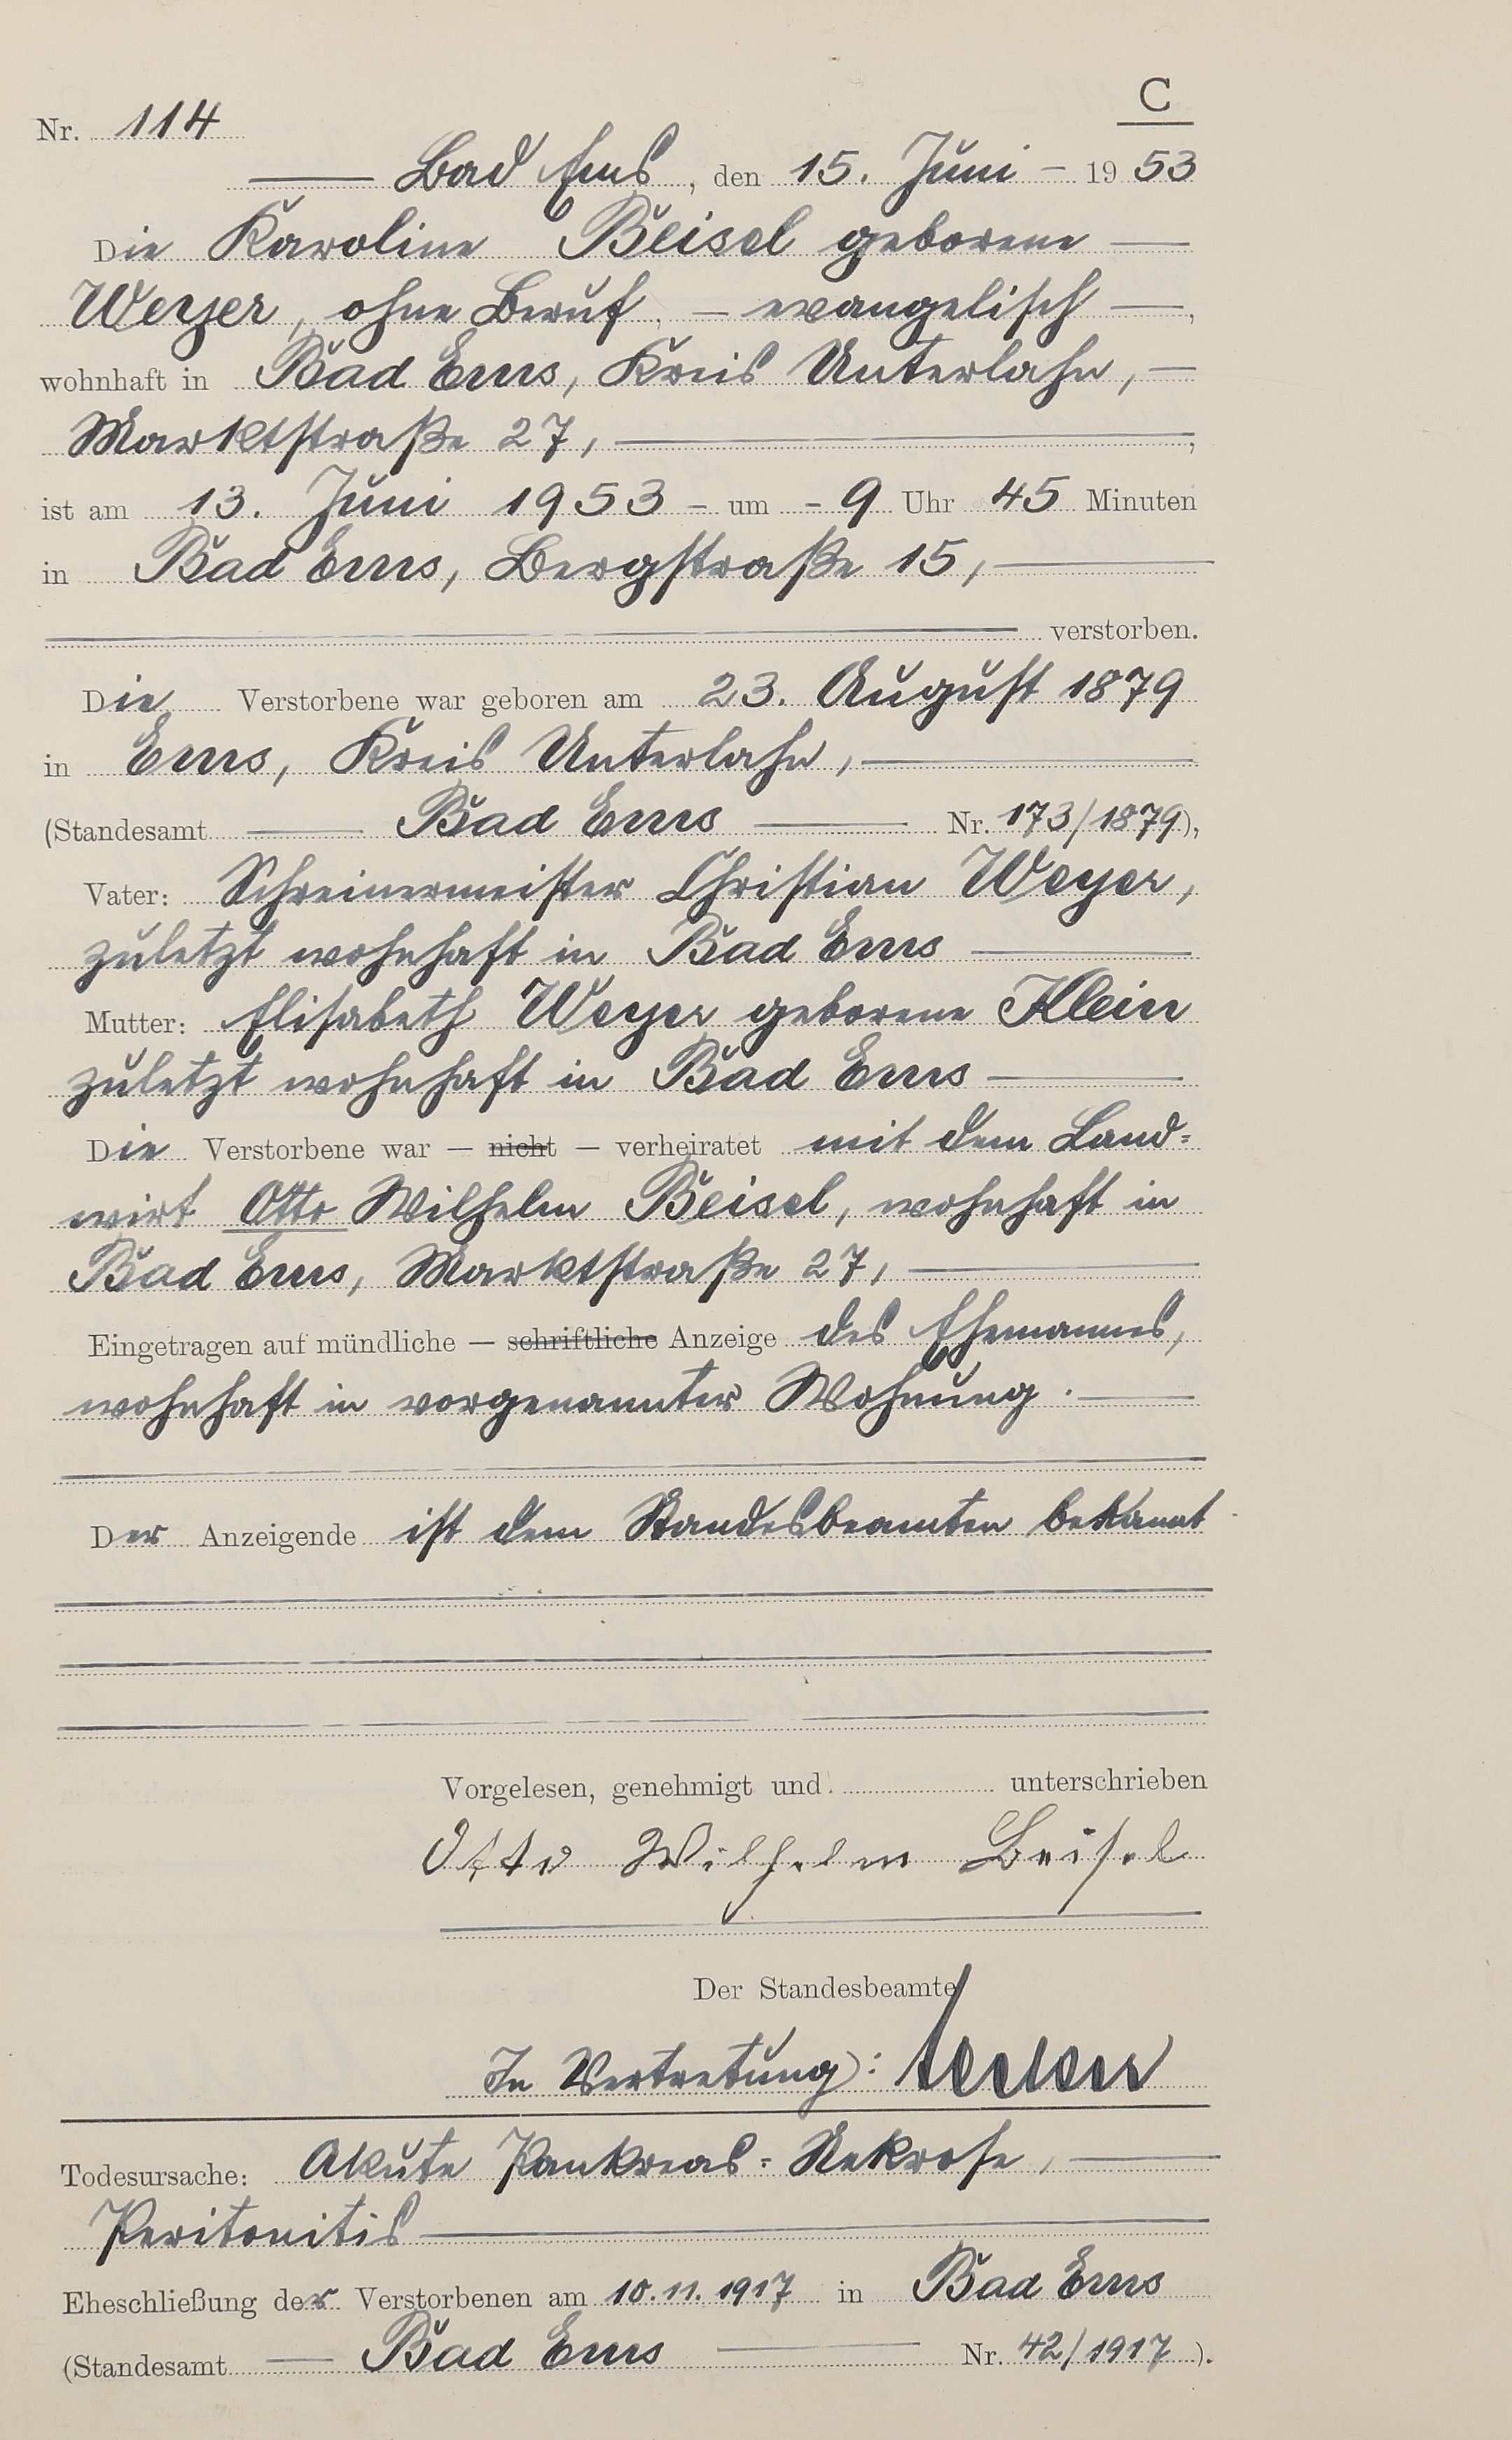 C
Nr. 114
Bad Ems, den 15. Juni - 1953
Die Karoline Beisel geborene
Weyer, ohne Beruf, - evangelisch -,
wohnhaft in Bad Ems, Kreis Unterlahn, -
Marktstraße 27,
ist am 13. Juni 1953 - um - 9 Uhr 45 Minuten
in Bad Ems, Bergstraße 15,
verstorben.
Die Verstorbene war geboren am 23. August 1879
in Ems, Kreis Unterlahn,
(Standesamt Bad Ems Nr. 173/1879),
Vater: Schreinermeister Christian Weyer,
zuletzt wohnhaft in Bad Ems
Mutter: Elisabeth Weyer geborene Klein
zuletzt wohnhaft in Bad Ems
Die Verstorbene war — nicht — verheiratet mit dem Land=
wirt Otto Wilhelm Beisel, wohnhaft in
Bad Ems, Marktstraße 27,
Eingetragen auf mündliche — schriftliche Anzeige des Ehemannes,
wohnhaft in vorgenannter Wohnung.
Der Anzeigende ist dem Standesbeamten bekannt
Vorgelesen, genehmigt und unterschrieben
Otto Wilhelm Beisel
Der Standesbeamte
In Vertretung:
Todesursache: Akute Pankreas=Nekrose,
Peritonitis
Eheschließung der Verstorbenen am 10.11.1917 in Bad Ems
(Standesamt Bad Ems Nr. 42/1917).